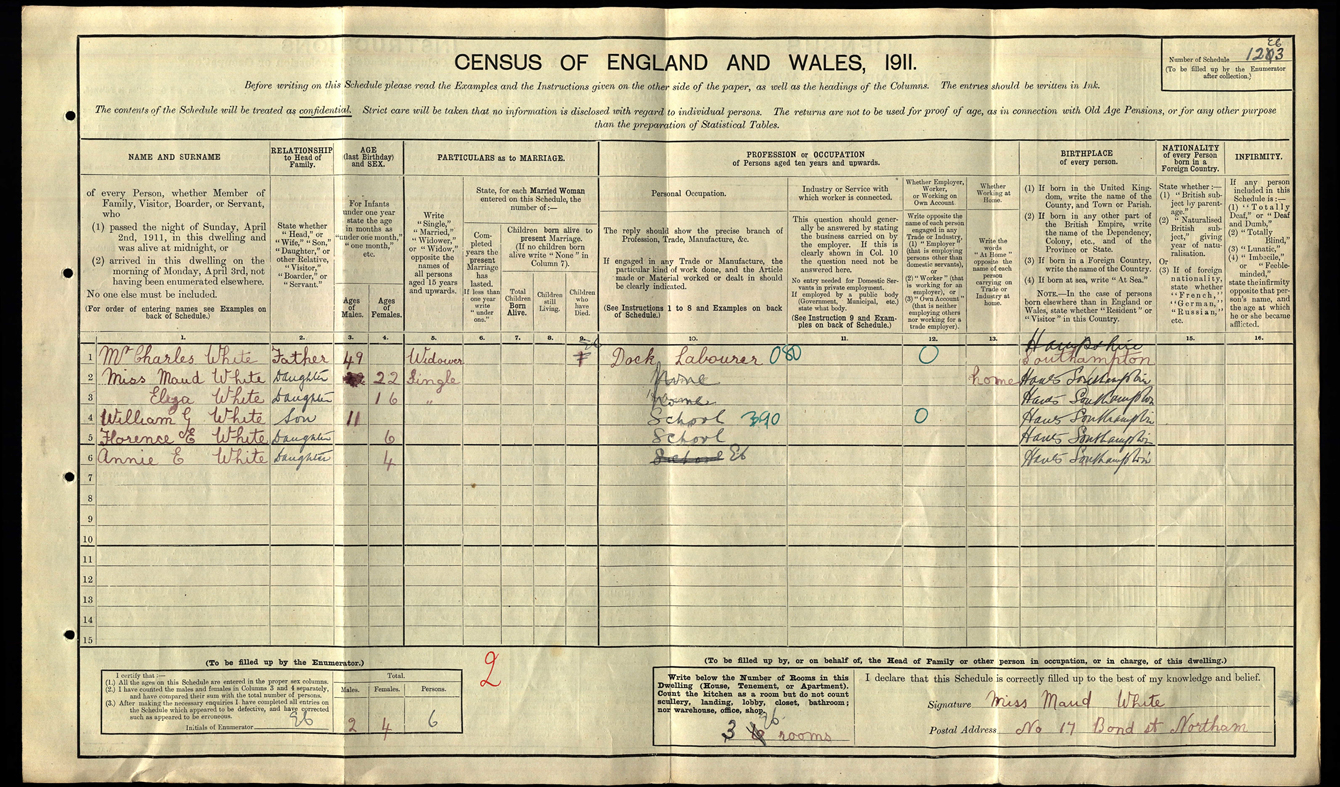 CENSUS OF ENGLAND AND WALES, 1911.
Number of Schedule
(To be filled up by the Enumerator
after collection.)
Before writing on this Schedule please read the Examples and the Instructions given on the other side of the paper, as well as the headings of the Columns. The entries should be written in Ink.
The contents of the Schedule will be treated as confidential. Strict care will be taken that no information is disclosed with regard to individual persons. The returns are not to be used for proof of age, as in connection with Old Age Pensions, or for any other purpose
than the preparation of Statistical Tables.
NAME AND SURNAME
of every Person, whether Member of
Family, Visitor, Boarder, or Servant,
who
(1) passed the night of Sunday, April
2nd, 1911, in this dwelling and
was alive at midnight, or
(2) arrived in this dwelling on the
morning of Monday, April 3rd, not
having been enumerated elsewhere.
No one else must be included.
(For order of entering names see Examples on
back of Schedule.)
RELATIONSHIP
to Head of
Family.
State whether
"Head," or
"Wife," "Son,"
"Daughter," or
other Relative,
"Visitor,"
"Boarder," or
"Servant."
AGE
(last Birthday)
and SEX.
For Infants
under one year
state the age
in months as
"under one month,"
"one month,"
etc.
Ages
of
Males.
Ages
of
Females.
PARTICULARS as to MARRIAGE.
Write
"Single,"
"Married,"
"Widower,"
or "Widow,"
opposite the
names of
all persons
aged 15 years
and upwards.
State, for each Married Woman
entered on this Schedule, the
number of:—
Completed
years the
present
Marriage
has
lasted.
If less than
one year
write
"under
one."
Children born alive to
present Marriage.
(If no children born
alive write "None" in
Column 7).
Total
Children
Born
Alive.
Children
still
Living.
Children
who
have
Died.
PROFESSION or OCCUPATION
of Persons aged ten years and upwards.
Personal Occupation.
The reply should show the precise branch of
Profession, Trade, Manufacture, &c.
If engaged in any Trade or Manufacture, the
particular kind of work done, and the Article
made or Material worked or dealt in should
be clearly indicated.
(See Instructions 1 to 8 and Examples on back
of Schedule.)
Industry or Service with
which worker is connected.
This question should gener-
ally be answered by stating
the business carried on by
the employer. If this is
clearly shown in Col. 10
the question need not be
answered here.
No entry needed for Domestic Ser-
vants in private employment.
If employed by a public body
(Government, Municipal, etc.)
state what body.
(See Instruction 9 and Exam-
ples on back of Schedule.)
Whether Employer,
Worker,
or Working on
Own Account.
Write opposite the
name of each person
engaged in any
Trade or Industry,
(1) "Employer"
(that is employing
persons other than
domestic servants),
or
(2) "Worker" (that
is working for an
employer), or
(3) "Own Account"
(that is neither
employing others
nor working for a
trade employer).
Whether
Working at
Home.
Write the
words
"At Home"
opposite the
name of each
person
carrying on
Trade or
Industry at
home.
BIRTHPLACE
of every person.
(1) If born in the United King-
dom, write the name of the
County, and Town or Parish.
(2) If born in any other part of
the British Empire, write
the name of the Dependency,
Colony, etc., and of the
Province or State.
(3) If born in a Foreign Country,
write the name of the Country.
(4) If born at sea, write "At Sea."
NOTE.—In the case of persons
born elsewhere than in England or
Wales, state whether "Resident" or
"Visitor" in this Country.
NATIONALITY
of every Person
born in a
Foreign Country.
State whether:—
(1) "British sub-
ject by parent-
age."
(2) "Naturalised
British sub-
ject," giving
year of natu-
ralisation.
Or
(3) If of foreign
nationality,
state whether
"French,"
"German,"
"Russian,"
etc.
INFIRMITY.
If any person
included in this
Schedule is:—
(1) "Totally
Deaf," or "Deaf
and Dumb,"
(2) "Totally
Blind,"
(3) "Lunatic,"
(4) "Imbecile,"
or "Feeble-
minded,"
state the infirmity
opposite that per-
son's name, and
the age at which
he or she became
afflicted.
1. 2. 3. 4. 5. 6. 7. 8. 9. 10. 11. 12. 13. 14. 15. 16.
Hampshire
1 Mr Charles White Father 49 Widower Dock Labourer 080 0 Southampton
2 Miss Maud White Daughter 22 Single None home Hants Southampton
3 Eliza White Daughter 16 " None Hants Southampton
4 William G White Son 11 School 390 0 Hants Southampton
5 Florence E White Daughter 6 School Hants Southampton
6 Annie E White Daughter 4 School Eb Hants Southampton
7
8
9
10
11
12
13
14
15
2
(To be filled up by the Enumerator.)
I certify that:—
(1.) All the ages on this Schedule are entered in the proper sex columns.
(2.) I have counted the males and females in Columns 3 and 4 separately,
and have compared their sum with the total number of persons.
(3.) After making the necessary enquiries I have completed all entries on
the Schedule which appeared to be defective, and have corrected
such as appeared to be erroneous.
Initials of Enumerator Eb
Total.
Males. Females. Persons.
2 4 6
(To be filled up by, or on behalf of, the Head of Family or other person in occupation, or in charge, of this dwelling.)
Write below the Number of Rooms in this
Dwelling (House, Tenement, or Apartment).
Count the kitchen as a room but do not count
scullery, landing, lobby, closet, bathroom;
nor warehouse, office, shop.
3 rooms
I declare that this Schedule is correctly filled up to the best of my knowledge and belief.
Signature Miss Maud White
Postal Address No 17 Bond st Northam